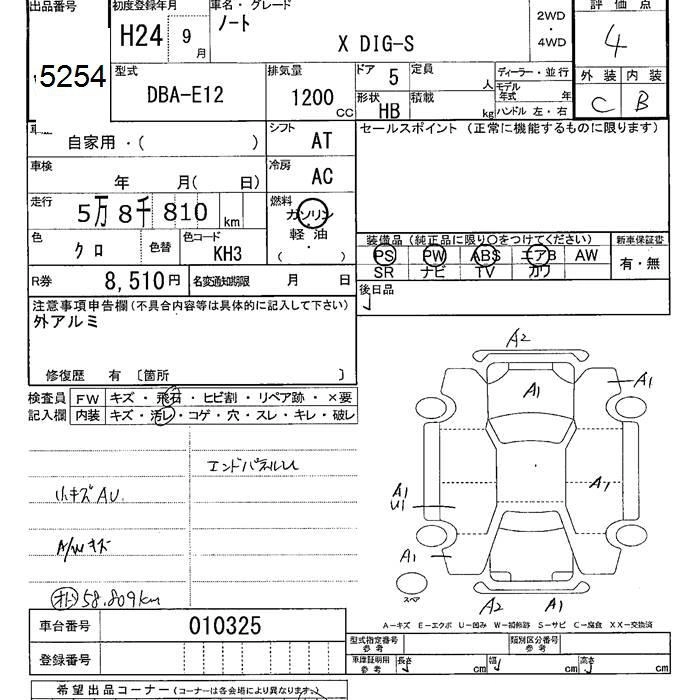 出品番号
5254
初度登録年月
H24 9月
車名・グレード
ノート
X DIG-S
2WD
・
4WD
評価点
4
外装 内装
C B
型式
DBA-E12
排気量
1200 CC
ドア 5
定員 人
形状 HB
積載 kg
ディーラー・並行
モデル年式 年
ハンドル 左・右
自家用・( )
シフト AT
セールスポイント (正常に機能するものに限ります)
車検
年 月( 日)
冷房 AC
走行
5万8千810 km
燃料
ガソリン
軽・油
・
( )
色
クロ
色替
色コード
KH3
装備品 (純正品に限り○をつけてください)
PS PW ABS エアB AW
SR ナビ TV カワ
新車保証書
有・無
R券 8,510円
名変通知期限 月 日
後日品
注意事項申告欄(不具合内容等は具体的に記入して下さい)
外アルミ
修復歴 有 〔箇所 〕
検査員記入欄
FW キズ・飛石・ヒビ割・リペア跡・×要
内装 キズ・汚レ・コゲ・穴・スレ・キレ・破レ
エンドパネルU
小キズAU
A/Wキズ
58.809km
A2
A1
A1
A1
A1
U1
A1
スペア
A2
A1
A-キズ E-エクボ U-凹み W-補修跡 S-サビ C-腐食 XX-交換済
車台番号 010325
登録番号
型式指定番号
参考
類別区分番号
参考
車庫証明用
参考
長さ cm
幅 cm
高さ cm
希望出品コーナー(コーナーは各会場により異なります。)